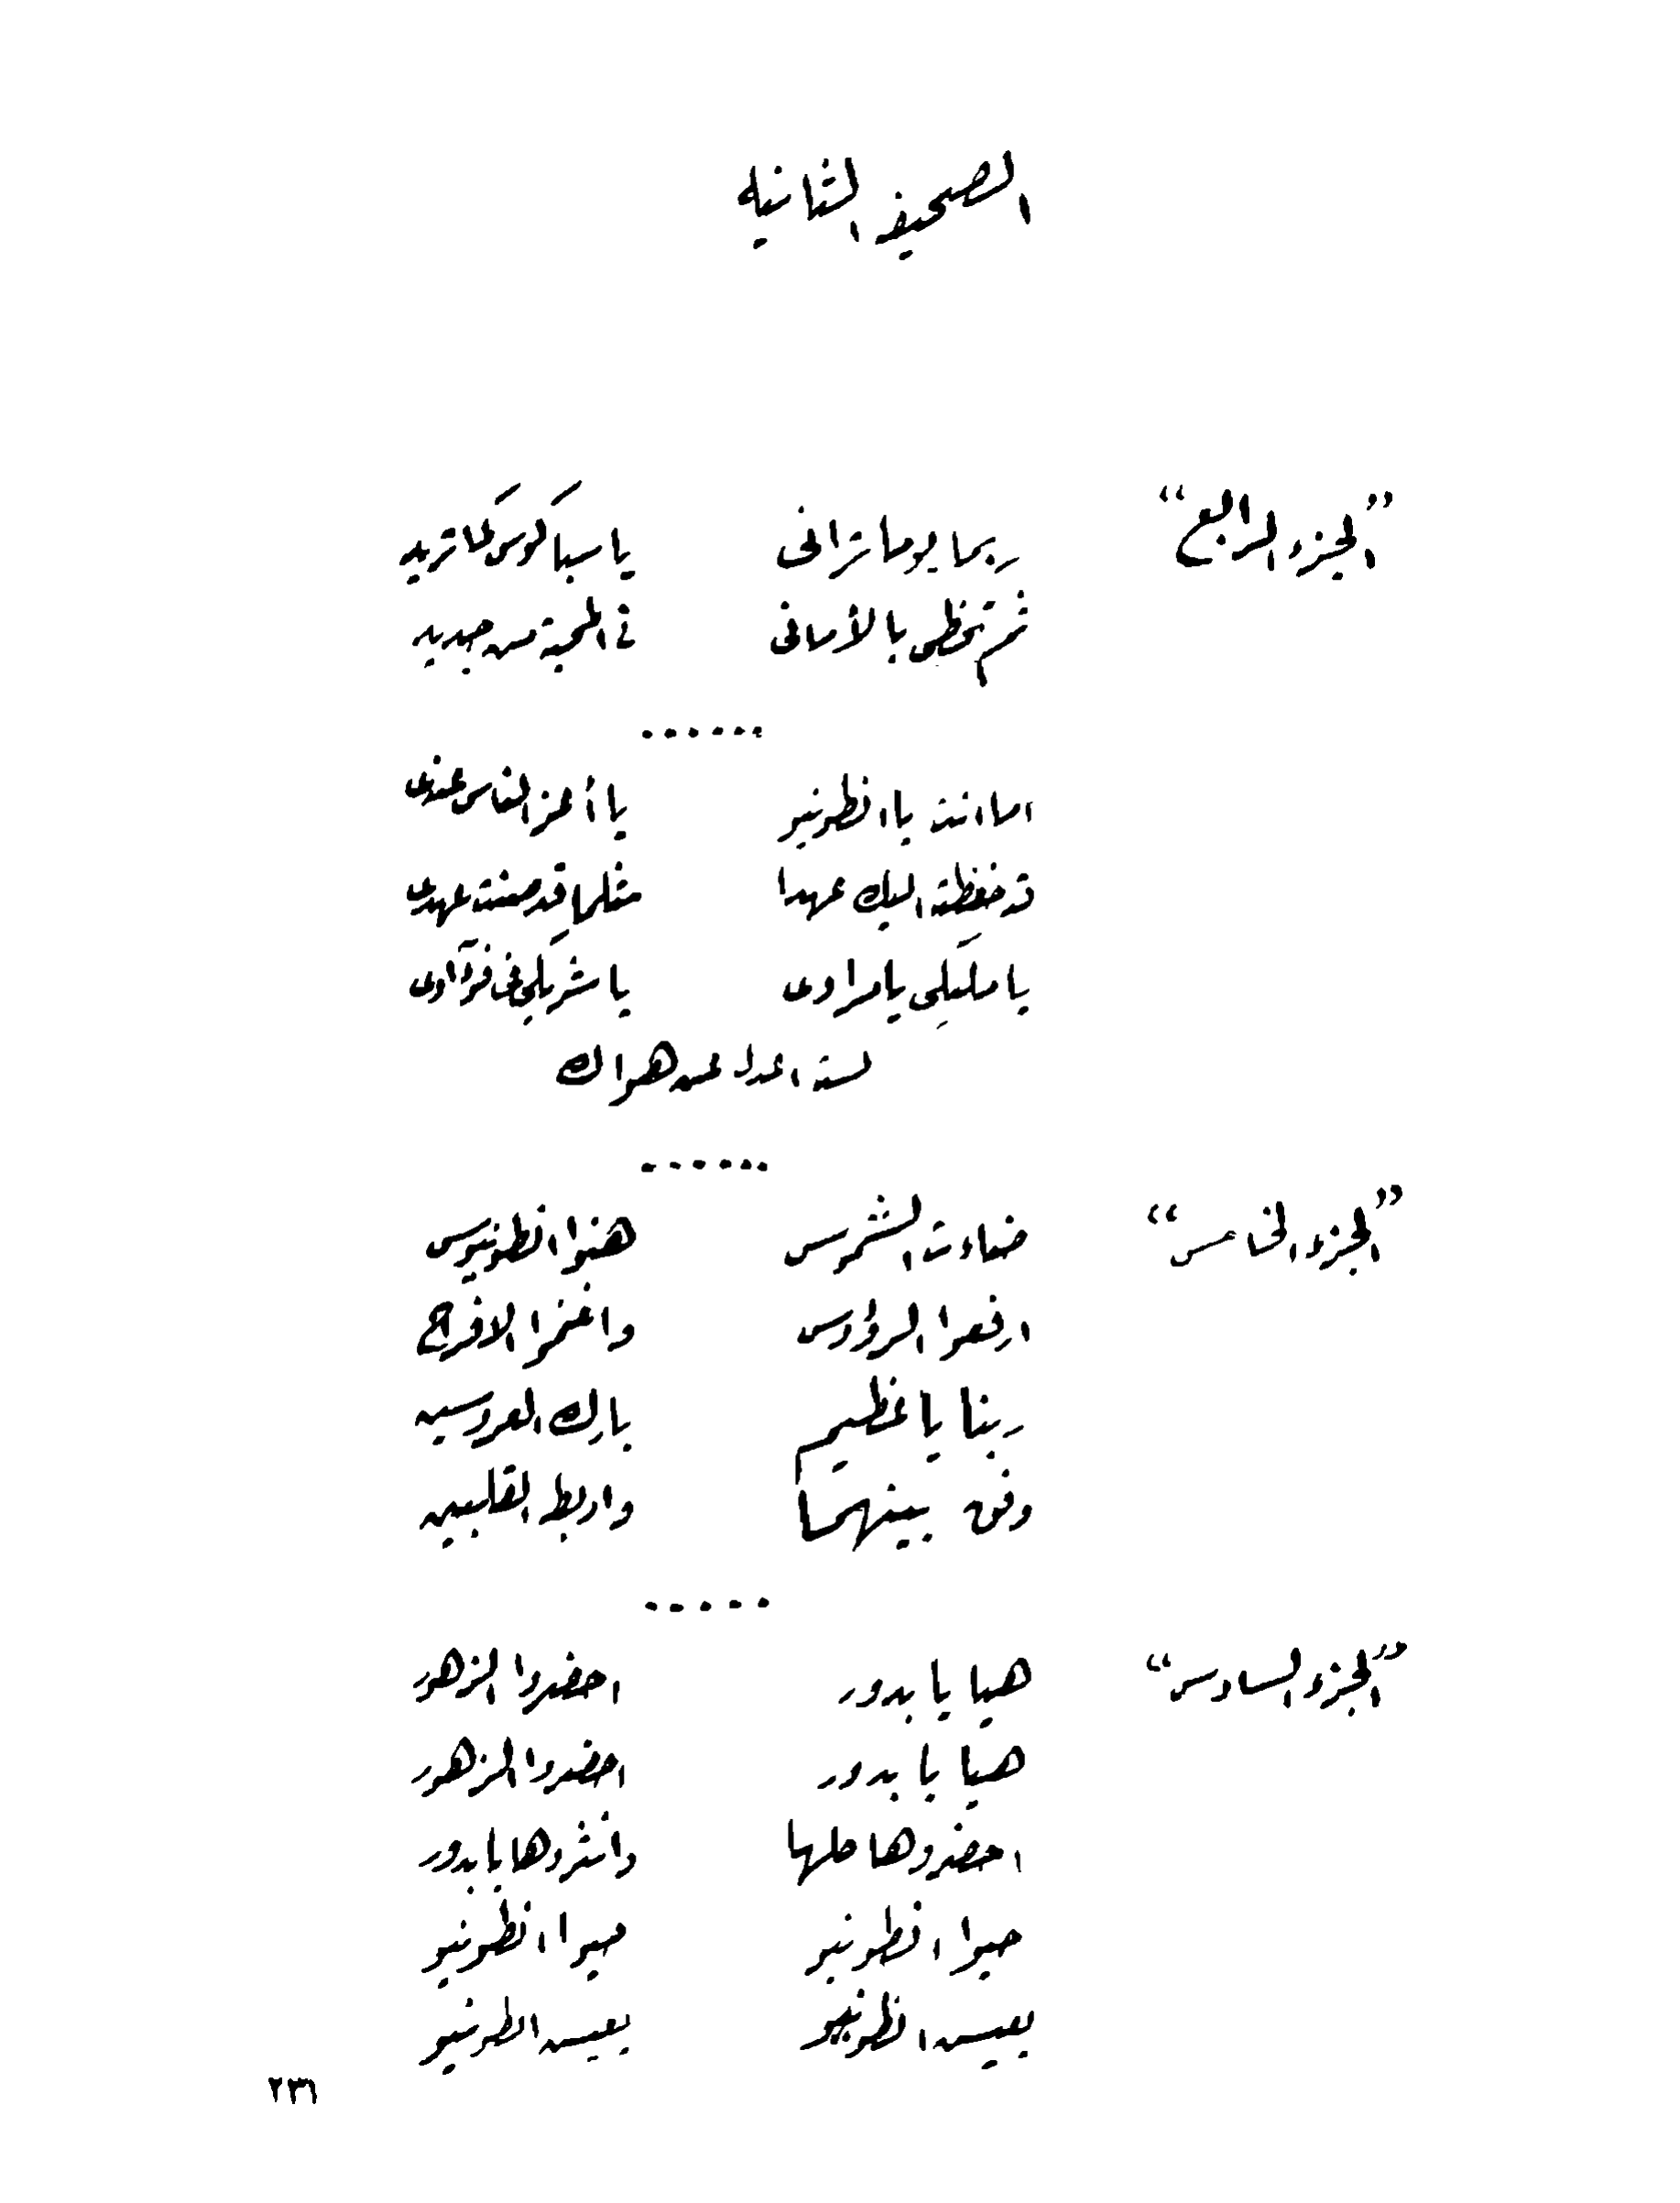 الصحيفه الثانيه
"الجزء الرابع" ربما يوما ترانى يا سباكوس كما تريد
ثم تحظى بالأمانى فى المحبة من جديد
......
اما انت يا انطونيو يا أعز الناس عندى
قد حفظت اليك عهدا مثلما قد صنت عهدى
يا مليكى يا مرادى يا شريكى فى فؤادى
لست اعدل عن هواك
......
"الجزء الخامس" ضاءت الشموس هنوا انطونيوس
ارفعوا الرؤوس واغنموا الافراح
ربنا يا عظيم بارك العروسين
وفق بينهما واربط القلبين
.....
"الجزء السادس" هيا يا بدور احضروا الزهور
هيا يا بدور احضروا الزهور
احضروها كلها وانثروها يا بدور
حيوا انطونيو حيوا انطونيو
يعيس انطونيو يعيس انطونيو
٢٣٦